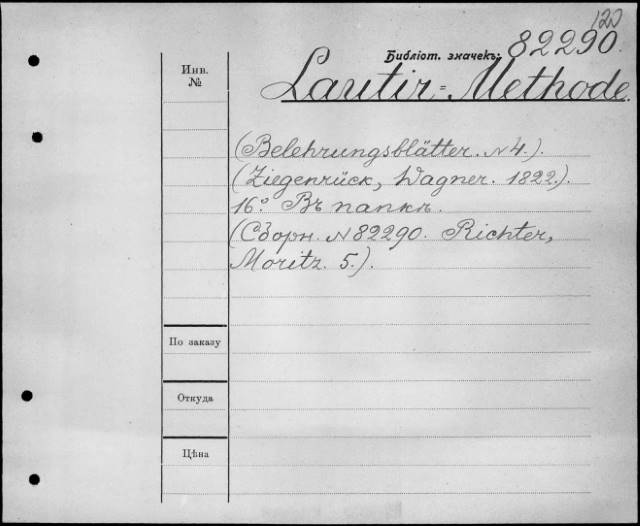 120
Библіот. значекъ: 82290.
Инв.
№
Lautir=Methode.
(Belehrungsblätter. № 4.).
(Ziegenrück, Wagner. 1822.).
16°. Въ папкѣ.
(Сборн. № 82290. Richter,
Moritz. 5.).
По заказу
Откуда
Цѣна